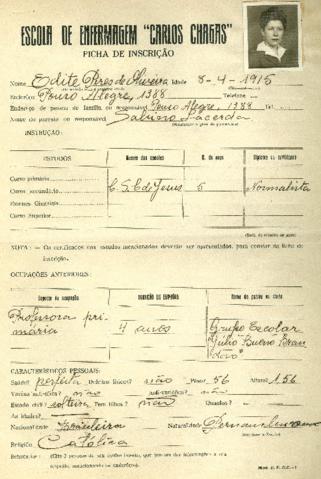 ESCOLA DE ENFERMAGEM "CARLOS CHAGAS"
FICHA DE INSCRIÇÃO
Nome Edite Pires de Idade 8-4-1915
Endereço Pouso Alegre, 1388 Telefone
Endereço de pessoa de família ou responsável Pouso Alegre, 1388 Tel.
Nome do parente ou responsável Lacerda
INSTRUÇÃO:
ESTUDOS Nome das escolas N. de anos Diploma ou certificado
Curso primário
Curso secundário C. S. C. de Jesus 5 Normalista
Curso Superior
NOTA: — Os certificados dos estudos mencionados deverão ser apresentados, para constar da ficha de
inscrição.
OCUPAÇÕES ANTERIORES:
Espécie de ocupação DURAÇÃO DO EMPREGO Nome do patrão ou chefe
Professora pri-
mária 4 anos Grupo Escolar
"Julio Bueno Bran
dão"
CARACTERÍSTICOS PESSOAIS:
Saúde? perfeita Defeitos físicos? não Peso? 56 Altura? 1.56
não não
Estado civil? solteira Tem filhos? não Quantos?
As idades?
Nacionalidade brasileira Naturalidade
Religião Católica